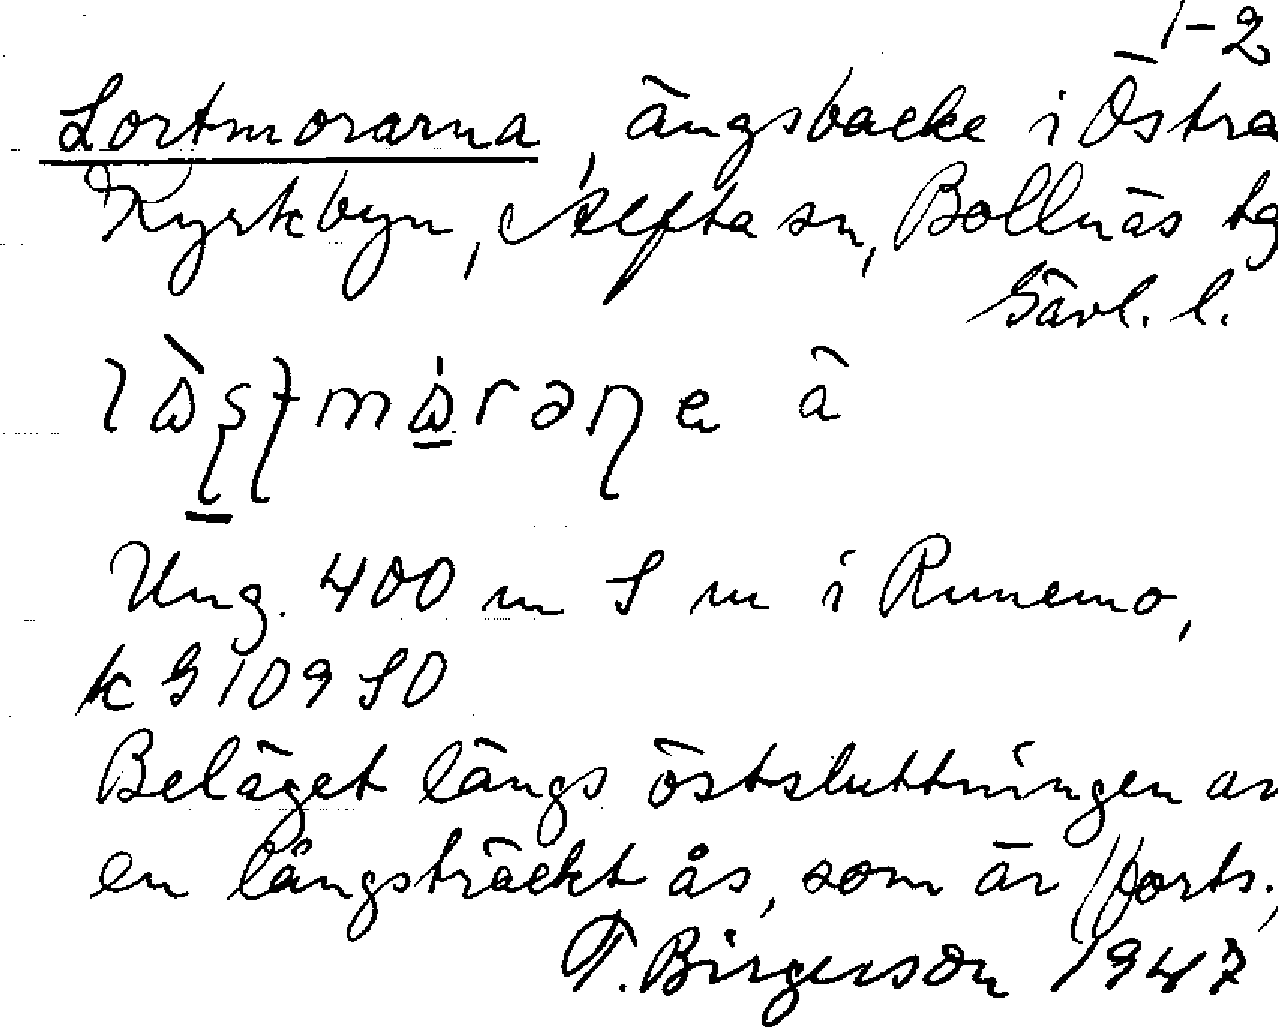 1-2
Lortmorarna, ängsbacke i Östra
Kyrkbyn, Alfta sn, Bollnäs tg
Gävl. l.
ä
Ung. 400 m S m i Runemo,
k G 109 SO
Beläget längs östsluttningen av
en långsträckt ås, som är (forts.)
T. Birgerson 1947